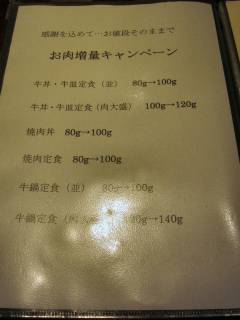 感謝を込めて…お値段そのままで
お肉増量キャンペーン
牛丼・牛皿定食（並） 80g→100g
牛丼・牛皿定食（肉大盛） 100g→120g
焼肉丼 80g→100g
焼肉定食 80g→100g
牛鍋定食（並） 80g→100g
牛鍋定食（肉大盛） →140g